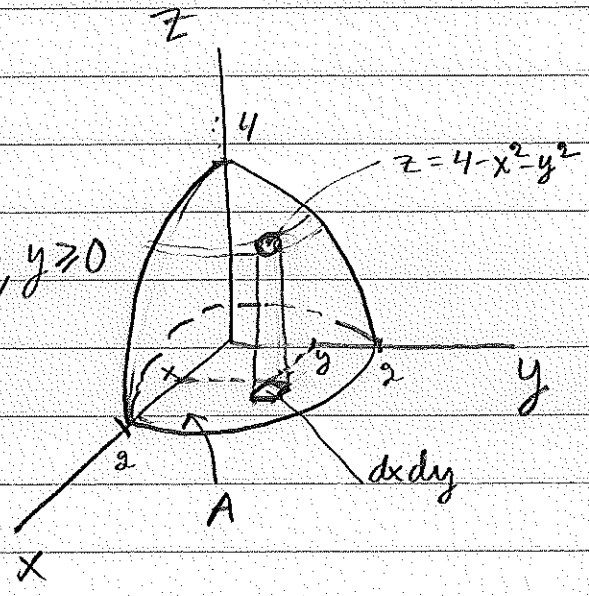 z
4
z = 4 - x² - y²
, y ≥ 0
x
y
2
y
2
dxdy
A
x